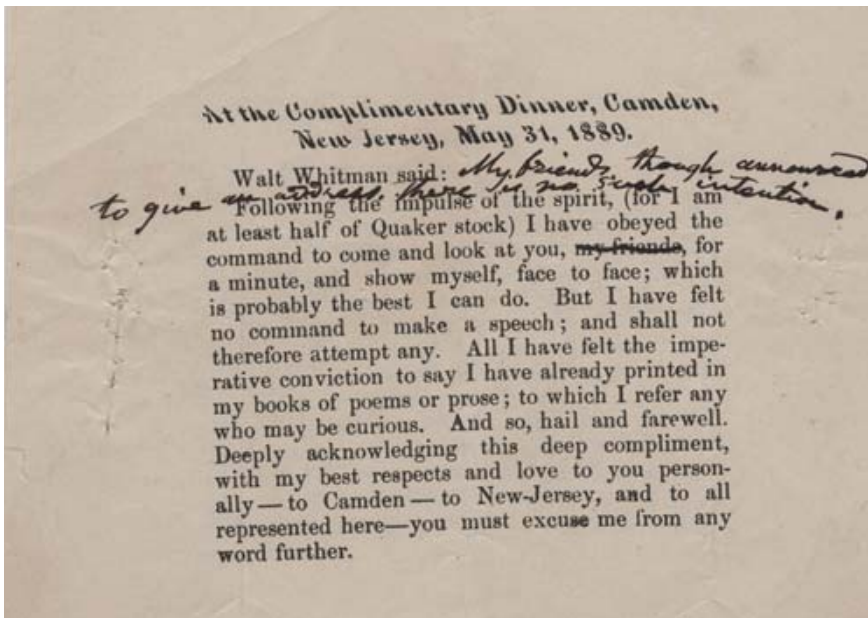 At the Complimentary Dinner, Camden,
New Jersey, May 31, 1889.
Walt Whitman said: My friends though announced
to give an address there is no such intention.
Following the impulse of the spirit, (for I am
at least half of Quaker stock) I have obeyed the
command to come and look at you, my friends, for
a minute, and show myself, face to face; which
is probably the best I can do. But I have felt
no command to make a speech; and shall not
therefore attempt any. All I have felt the impe-
rative conviction to say I have already printed in
my books of poems or prose; to which I refer any
who may be curious. And so, hail and farewell.
Deeply acknowledging this deep compliment,
with my best respects and love to you person-
ally—to Camden—to New-Jersey, and to all
represented here—you must excuse me from any
word further.